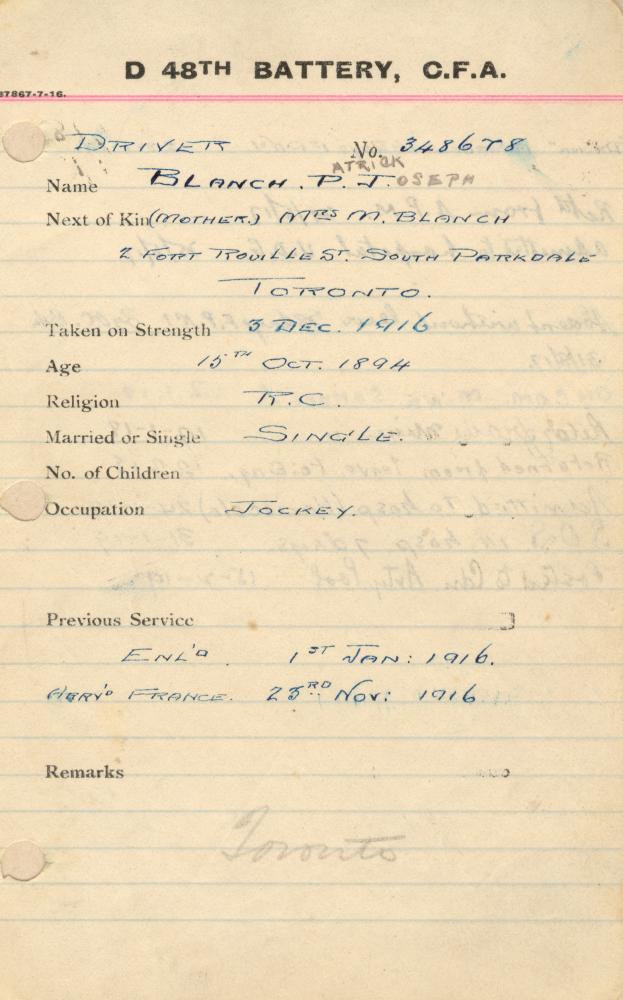 D 48TH BATTERY, C.F.A.
87867-7-16.
DRIVER No. 348678
Name BLANCH. P.ATRICK J.OSEPH
Next of Kin (MOTHER.) MRS M. BLANCH
2 FORT ROUILLE ST. SOUTH PARKDALE
TORONTO.
Taken on Strength 3 DEC. 1916
Age 15TH OCT. 1894
Religion R.C.
Married or Single SINGLE.
No. of Children
Occupation JOCKEY.
Previous Service
ENL'D. 1ST JAN: 1916.
ARRV'D FRANCE. 23RD NOV: 1916
Remarks
Toronto